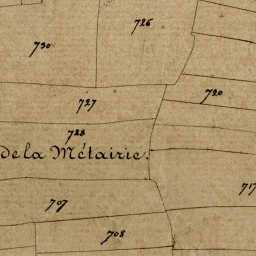 726
730
720
727
728
de la Métairie.
717
707
708